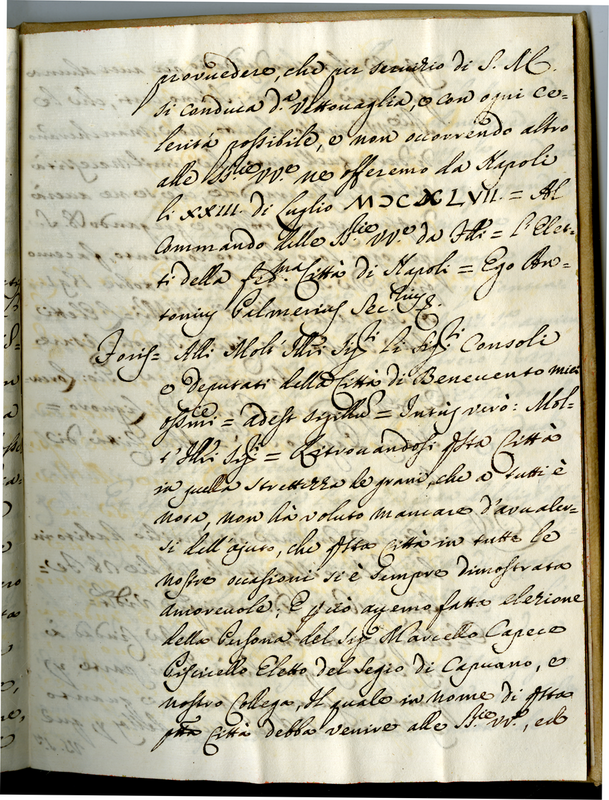 provvedere, che per servizio di S. M.
si conduca d.a Vettovaglia, e con ogni ce=
lerità possibile, e non occorrendo altro
alle VV.e ne offeremo da Napoli
li XXIII. di Luglio MDCXLVII. = Al
Commando delle VV.e da = L'Elet=
ti della fid.ma Città di Napoli = Ego An=
tonius Palmerius Sec.rius
Foris= Alli Molt' Ill.ri Sig.ri Li Sig.ri Consoli
e Deputati della Città di Benevento miei
oss.mi = adest sigillu = Intus verò: Mol=
t'Ill.ri Sig.ri = Ritrovandosi q.sta Città
in quella strettezza de grani, che a tutti è
nota, non hà voluto mancare d'avvaler=
si dell'ajuto, che q.sta Città in tutte le
nostre occasioni si è sempre dimostrata
amorevole; E p ciò avemo fatta elezione
della Persona del Sig.r Marcello Capece
Piscicello Eletto del Segio di Capuano, e
nostro Collega, Il quale in nome di q.sta
Città debba venire alle VV.e, ed